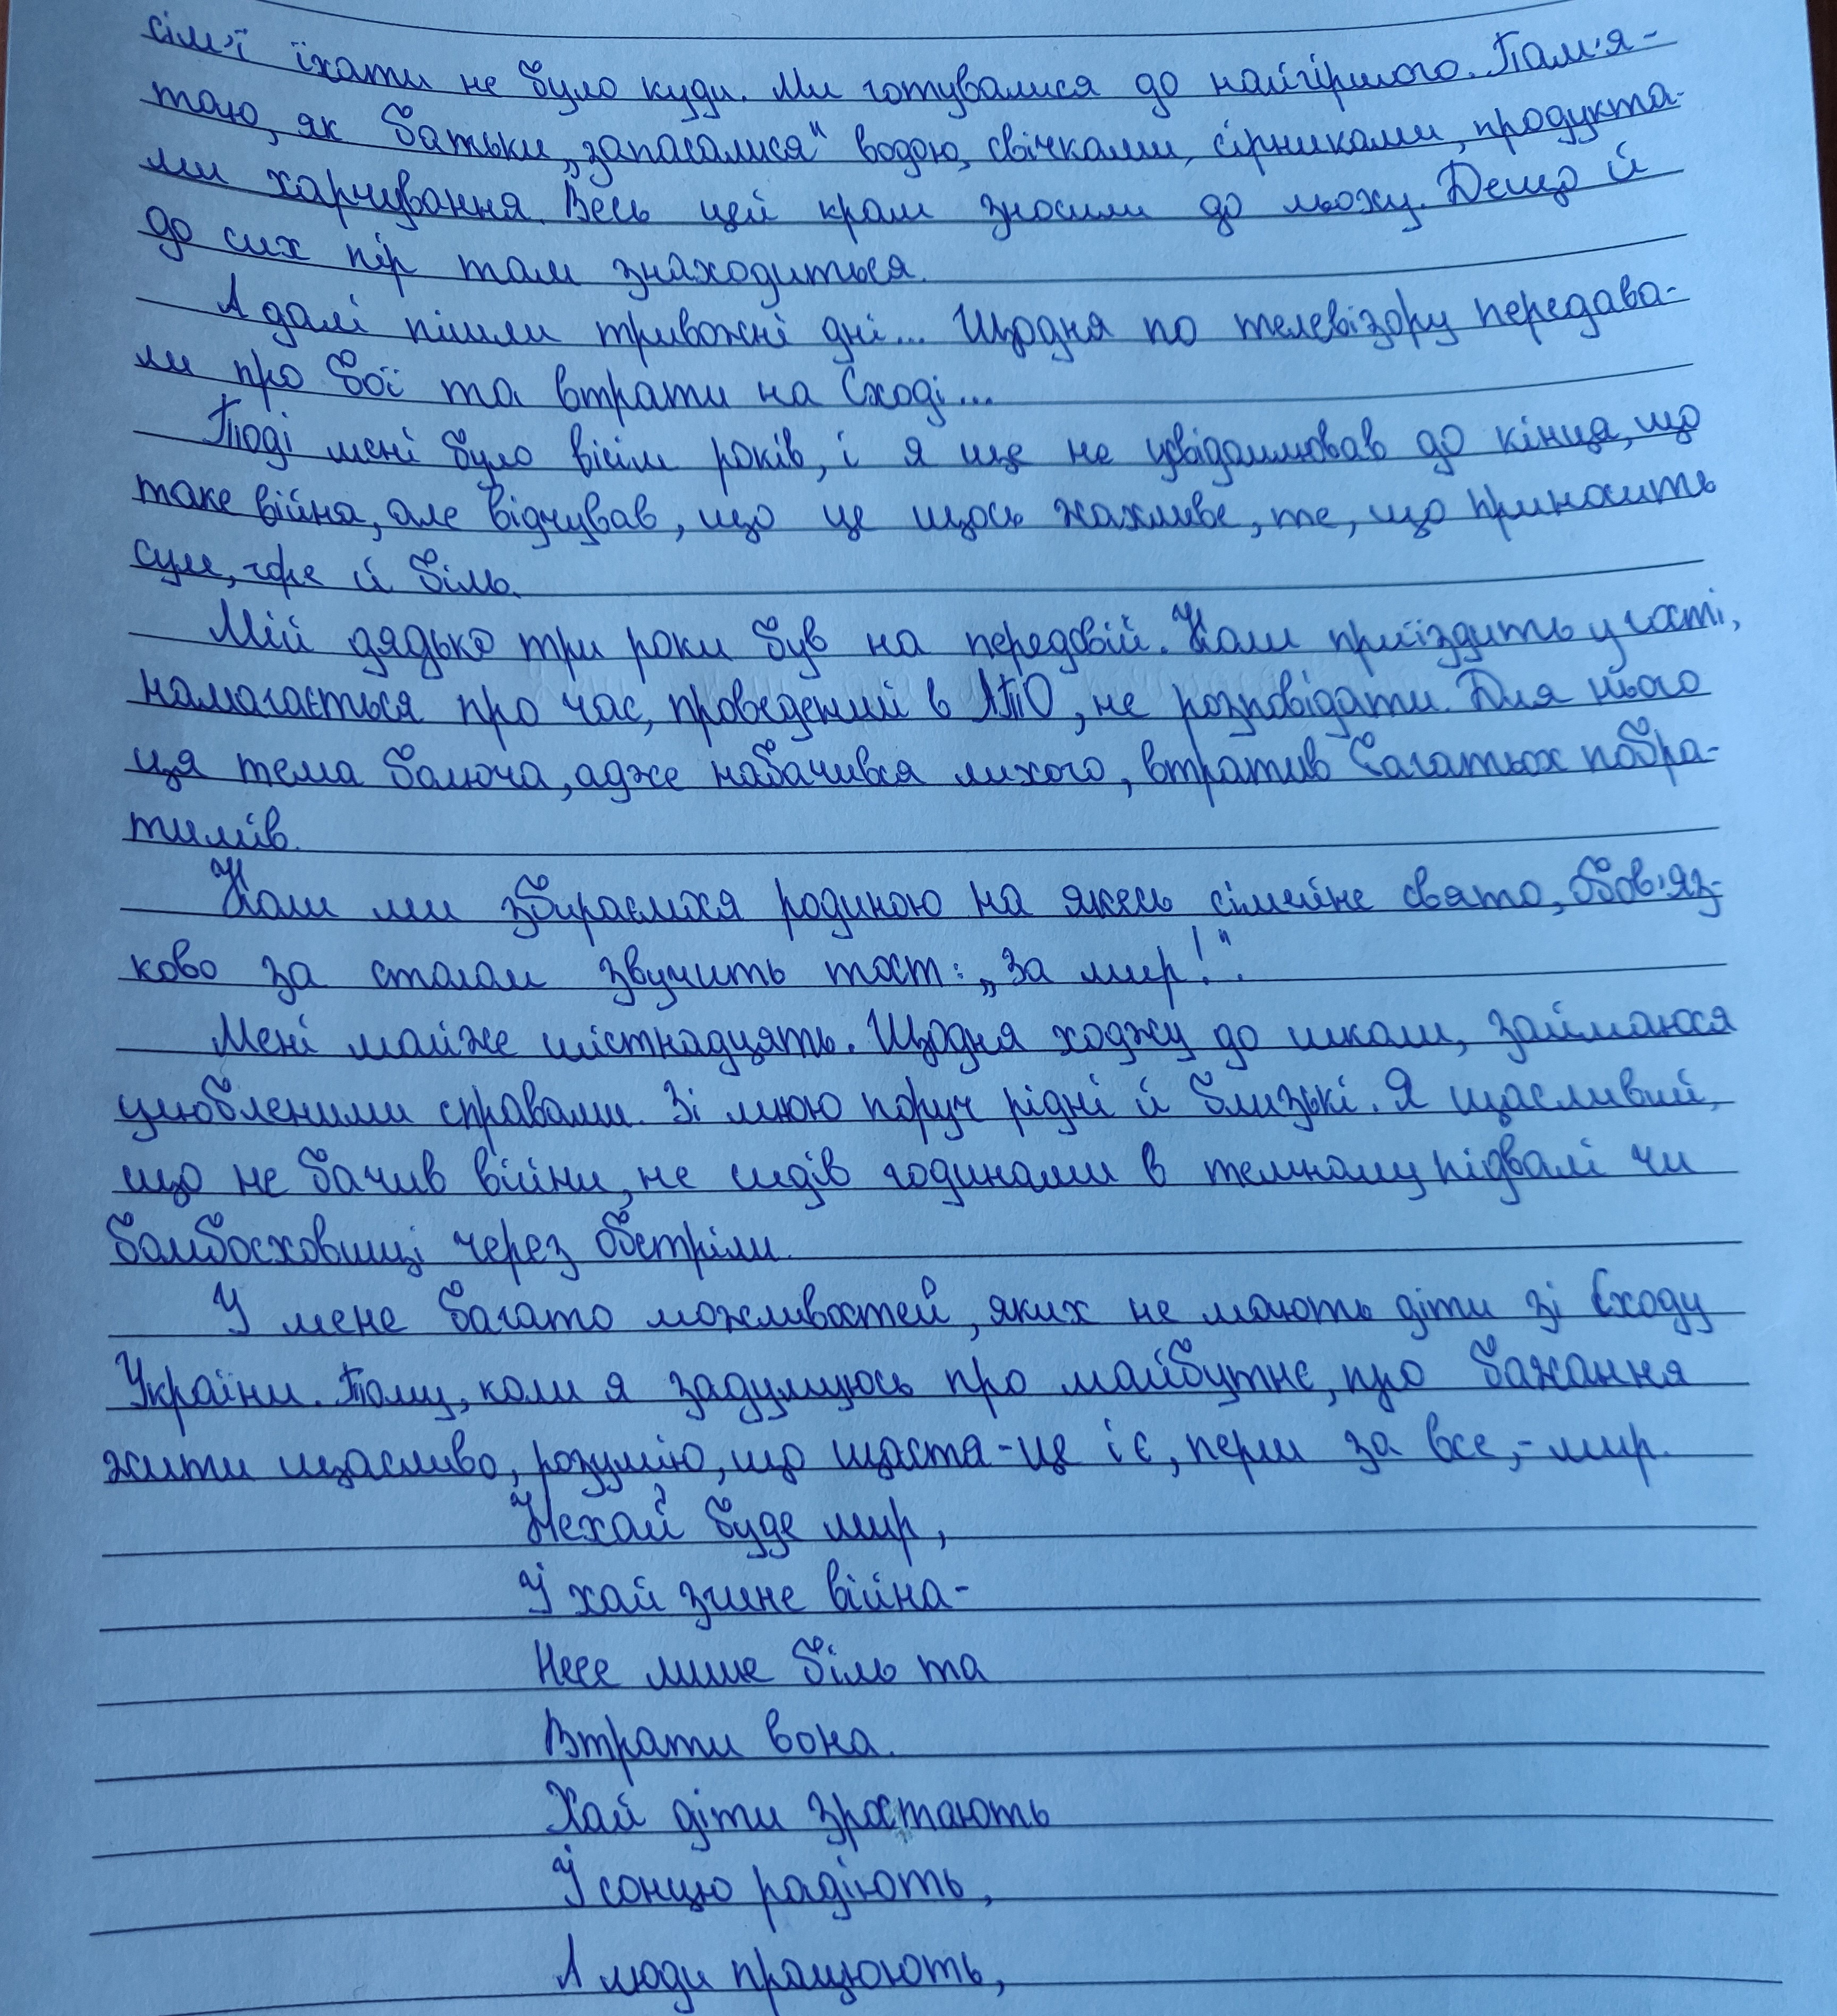 сім'ї їхати не було куди. Ми готувалися до найгіршого. Пам'я-
таю, як батьки „запасалися" водою, свічками, сірниками, продукта-
ми харчування. Весь цей крам зносили до льоху. Дещо й
до сих пір там знаходиться.
А далі пішли тривожні дні... Щодня по телевізору передава-
ли про бої та втрати на Сході...
Тоді мені було вісім років, і я ще не усвідомлював до кінця, що
таке війна, але відчував, що це щось жахливе, те, що приносить
сум, горе й біль.
Мій дядько три роки був на передовій. Коли приїздить у гості,
намагається про час, проведений в АТО, не розповідати. Для нього
ця тема болюча, адже набачився лихого, втратив багатьох побра-
тимів.
Коли ми збираємося родиною на якесь сімейне свято, обов'яз-
ково за столом звучить тост: „За мир!".
Мені майже шістнадцять. Щодня ходжу до школи, займаюся
улюбленими справами. Зі мною поруч рідні й близькі. Я щасливий,
що не бачив війни, не сидів годинами в темному підвалі чи
бомбосховищі через обстріли.
У мене багато можливостей, яких не мають діти зі Сходу
України. Тому, коли я задумуюсь про майбутнє, про бажання
жити щасливо, розумію, що щастя - це і є, перш за все, - мир.
Нехай буде мир,
Й хай згине війна -
Несе лише біль та
Втрати вона.
Хай діти зростають
Й сонцю радіють,
А люди працюють,